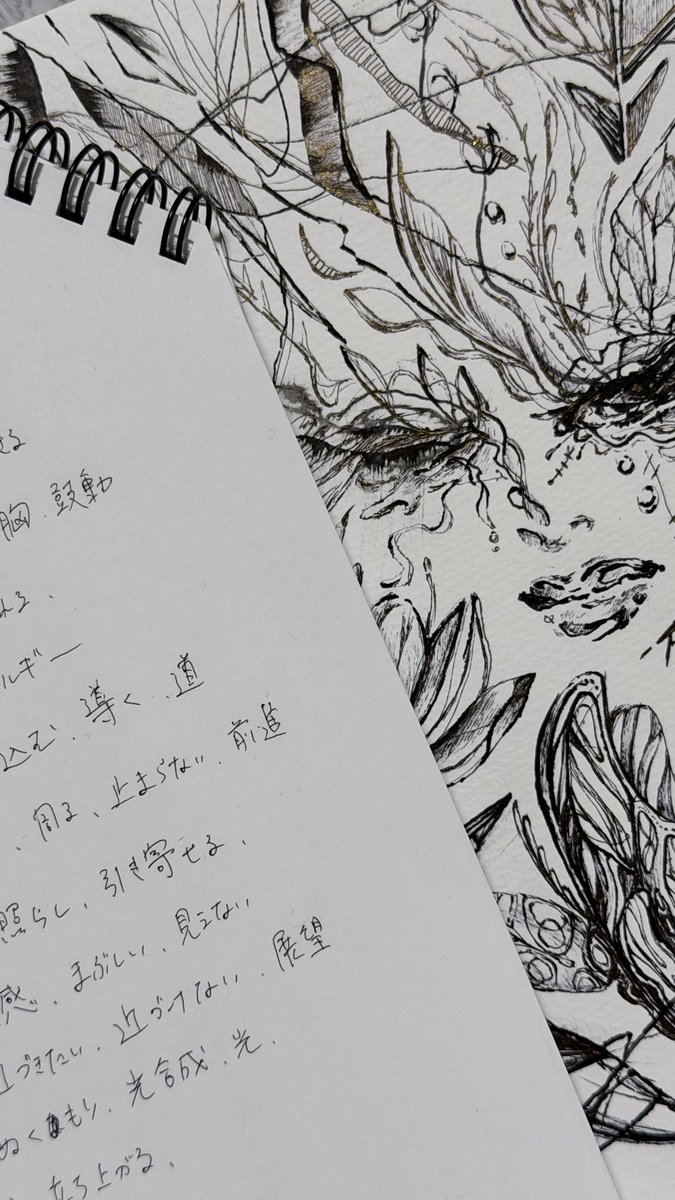 せる
胸、鼓動
れる、
ルギー
込む、導く、道
、周る、止まらない、前進
照らし、引き寄せる、
感、まぶしい、見えない
近づきたい、近づけない、展望
ぬくもり、光合成、光、
、立ち上がる、